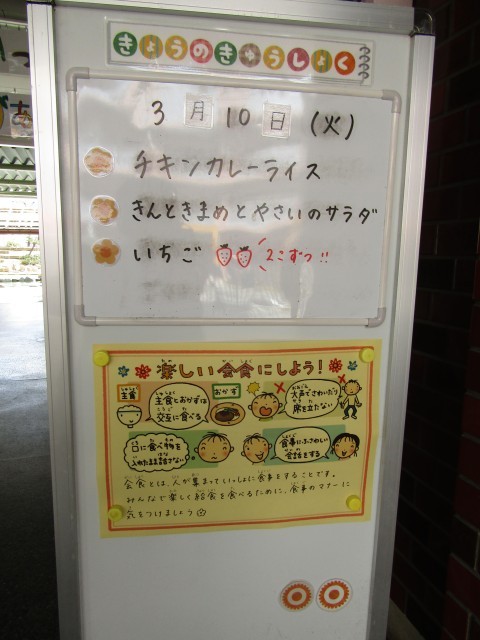 きょうのきゅうしょく
3月10日(火)
チキンカレーライス
きんときまめとやさいのサラダ
いちご 2こずつ!!
楽しい会食にしよう!
主食
おかず
主食とおかずは
交互に食べる
大声でさわいだり
席を立たない
口に食べ物を
入れたまま話さない
食事にふさわしい
会話をする
会食とは、人が集まっていっしょに食事をすることです。
みんなで楽しく給食を食べるために、食事のマナーに
気をつけましょう